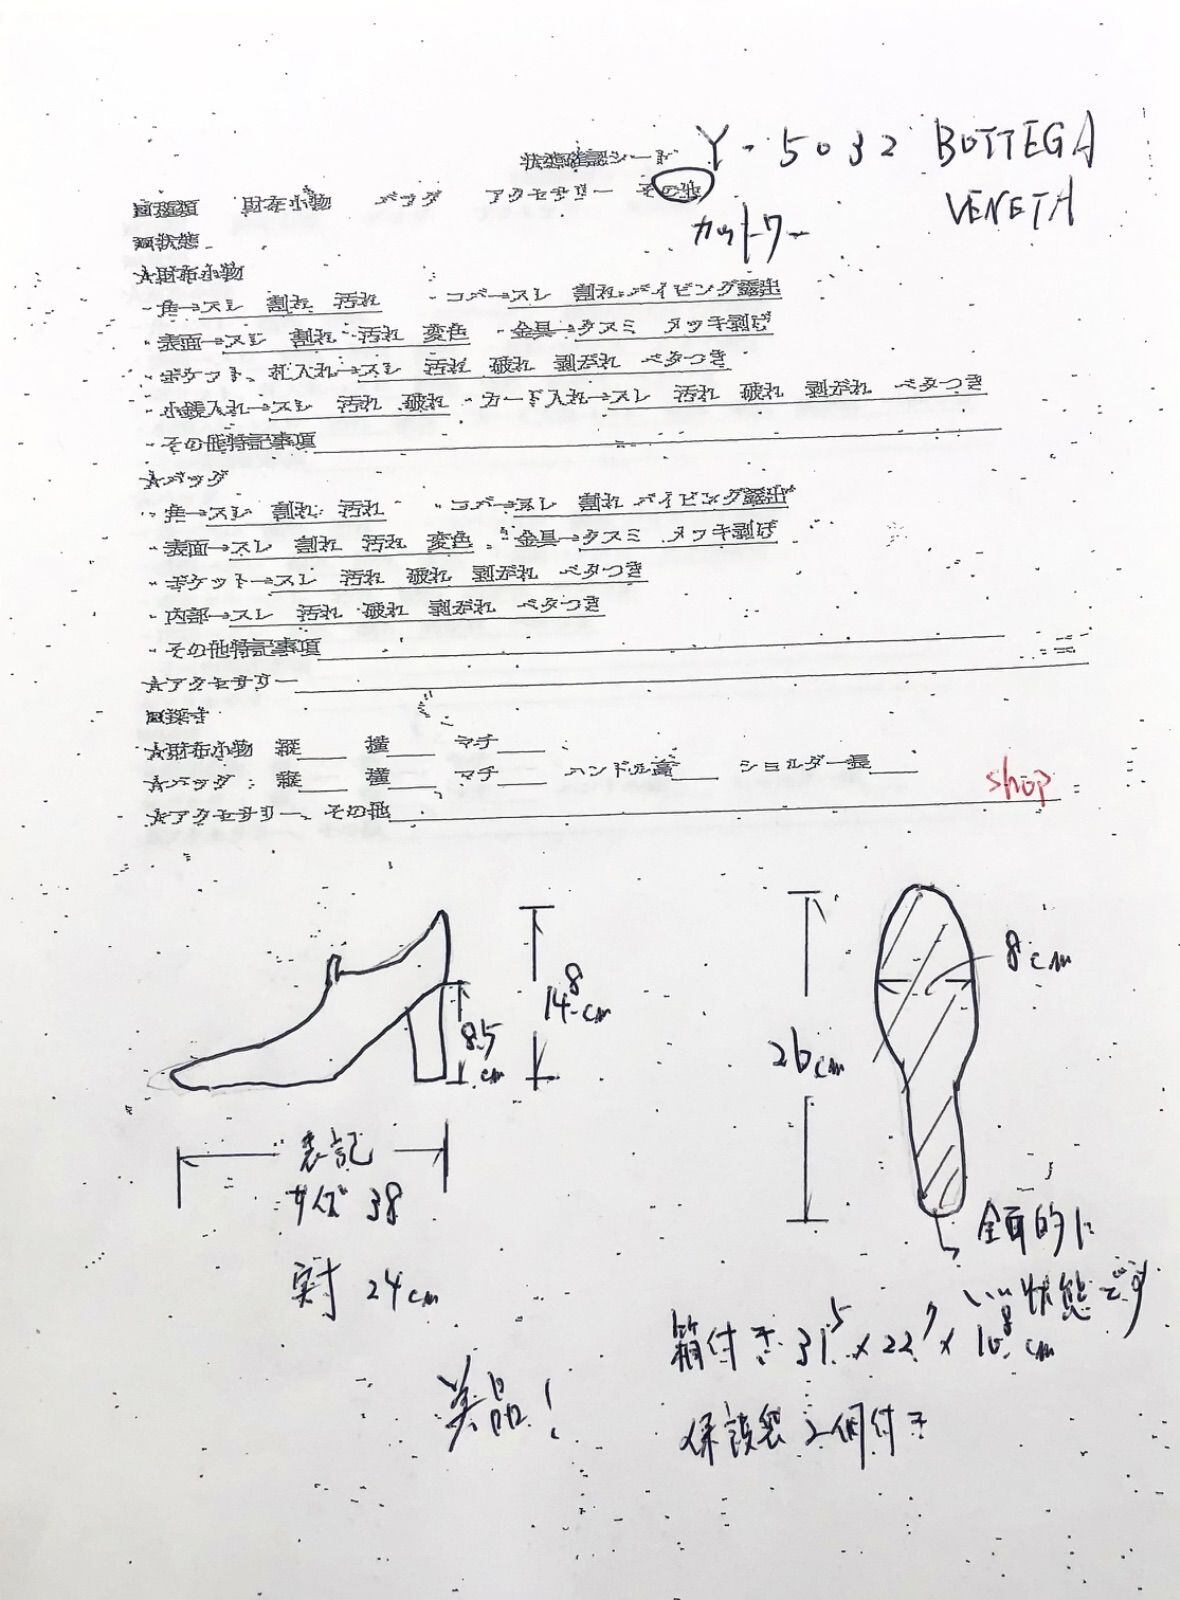 状態確認シート Y-5032 BOTTEGA
VENETA
□種類 財布小物 バッグ アクセサリー その他
カットワー
□状態
☆財布小物
・角→スレ 割れ 汚れ ・コバ→スレ 割れ パイピング露出
・表面→スレ 割れ 汚れ 変色 ・金具→クスミ メッキ剥げ
・ポケット、札入れ→スレ 汚れ 破れ 剥がれ ベタつき
・小銭入れ→スレ 汚れ 破れ ・カード入れ→スレ 汚れ 破れ 剥がれ ベタつき
・その他特記事項
☆バッグ
・角→スレ 割れ 汚れ ・コバ→スレ 割れ パイピング露出
・表面→スレ 割れ 汚れ 変色 ・金具→クスミ メッキ剥げ
・ポケット→スレ 汚れ 破れ 剥がれ ベタつき
・内部→スレ 汚れ 破れ 剥がれ ベタつき
・その他特記事項
☆アクセサリー
□採寸
☆財布小物 縦 横 マチ
☆バッグ: 縦 横 マチ ハンドル高 ショルダー長
shop
☆アクセサリー、その他
14.8cm
8.5cm
8cm
26cm
表記
サイズ 38
実寸 24cm
全面的に
いい状態です
箱付き 31.5×22.7×10.8cm
美品!
保護袋2個付き